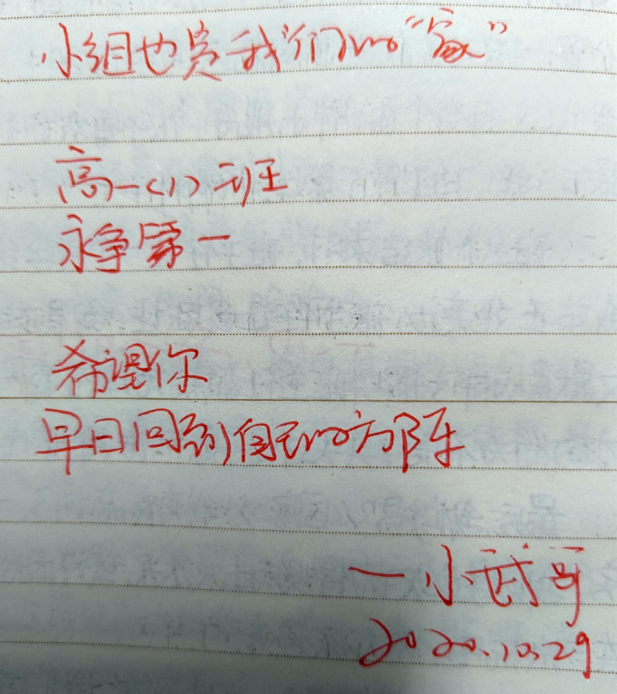 小组也是我们的“家”
高一(1)班
永争第一
希望你
早日回到自己的方阵
一小武哥
2020.10.29